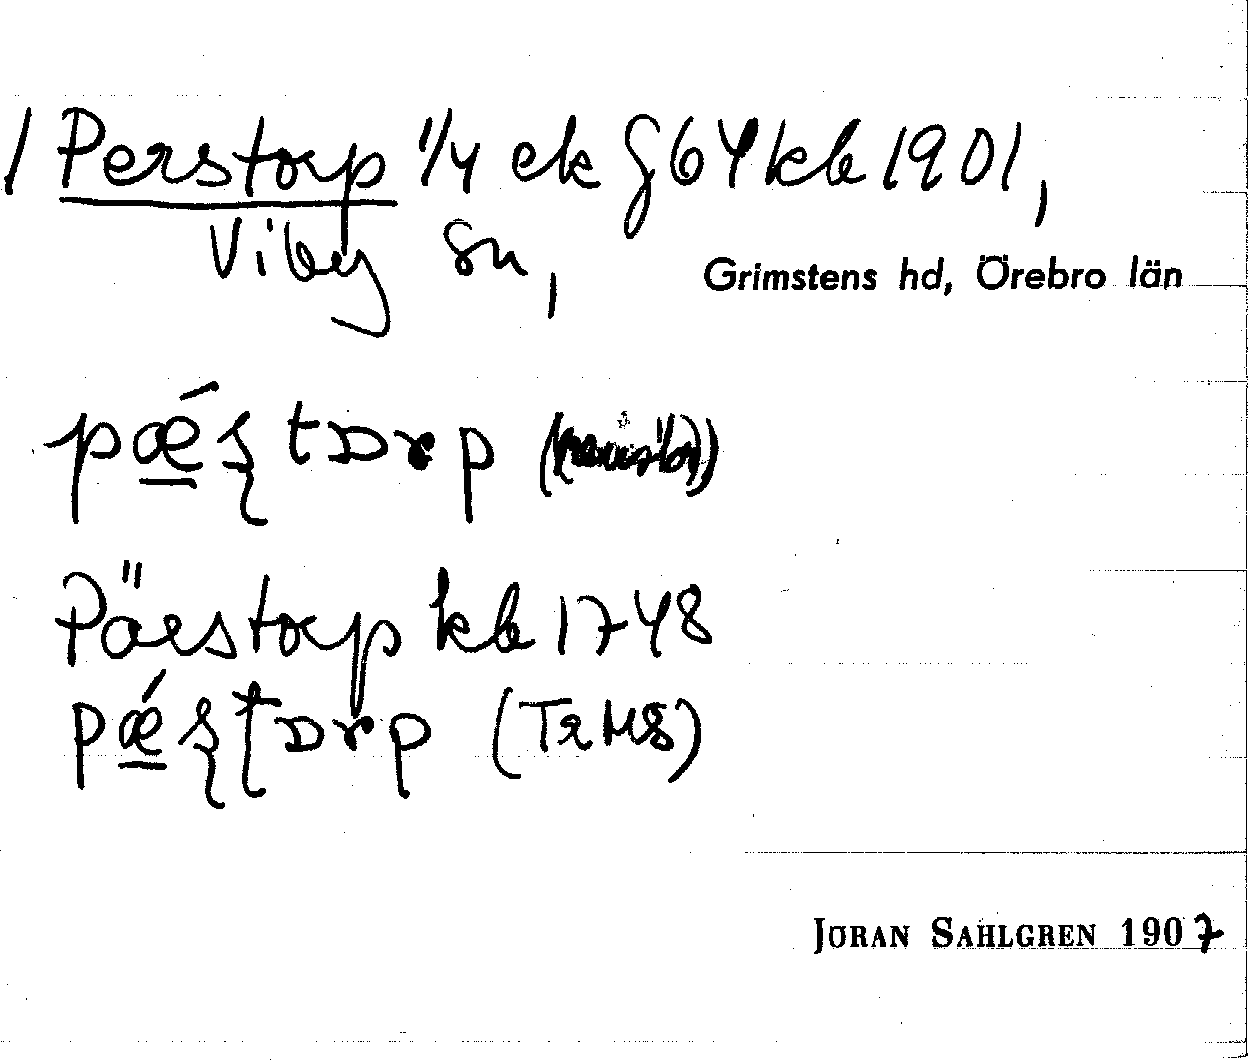 / Perstorp 1/4 ek f 64 kb 1901,
Viby sn,
Grimstens hd, Örebro län
pǽʂtɒrp
Pärstorp kb 1748
pǽʂʈɒrp
JÖRAN SAHLGREN 1907